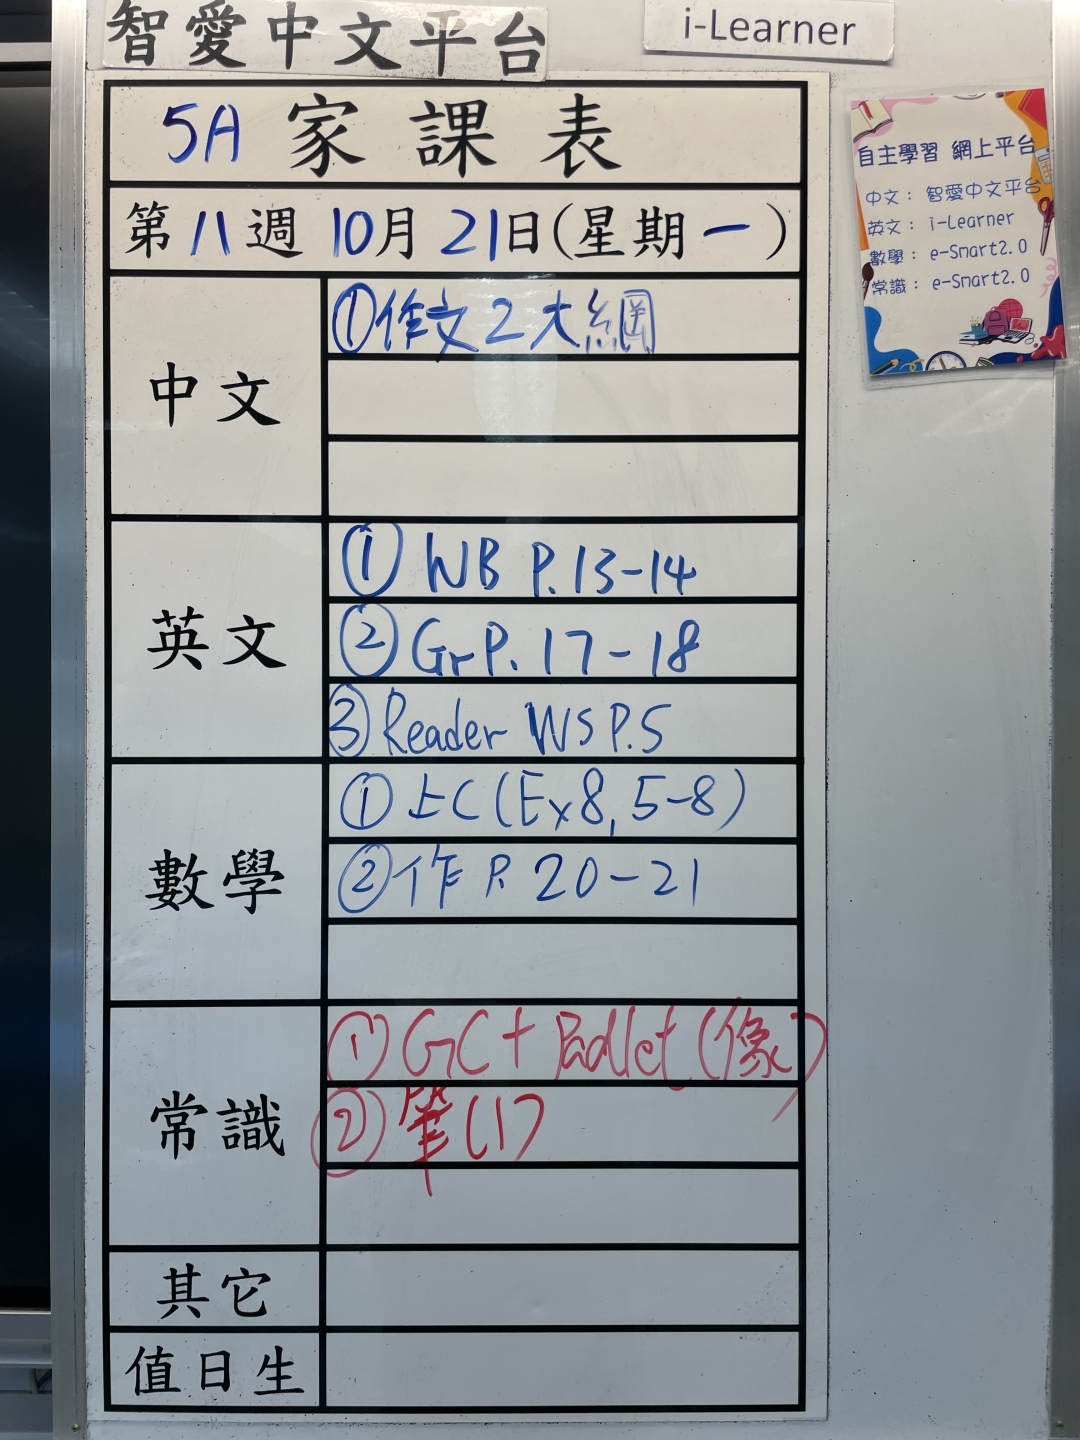 智愛中文平台
i-Learner
5A 家課表
第八週 10月21日(星期一)
自主學習 網上平台
中文： 智愛中文平台
英文： i-Learner
數學： e-Smart2.0
常識： e-Smart2.0
中文
①作文2大綱
英文
① WB P.13-14
② Gr P. 17-18
③ Reader WS P.5
數學
① 上C (Ex8, 5-8)
② 作 P. 20-21
常識
① GC + Padlet (像)
② 筆(1)
其它
值日生